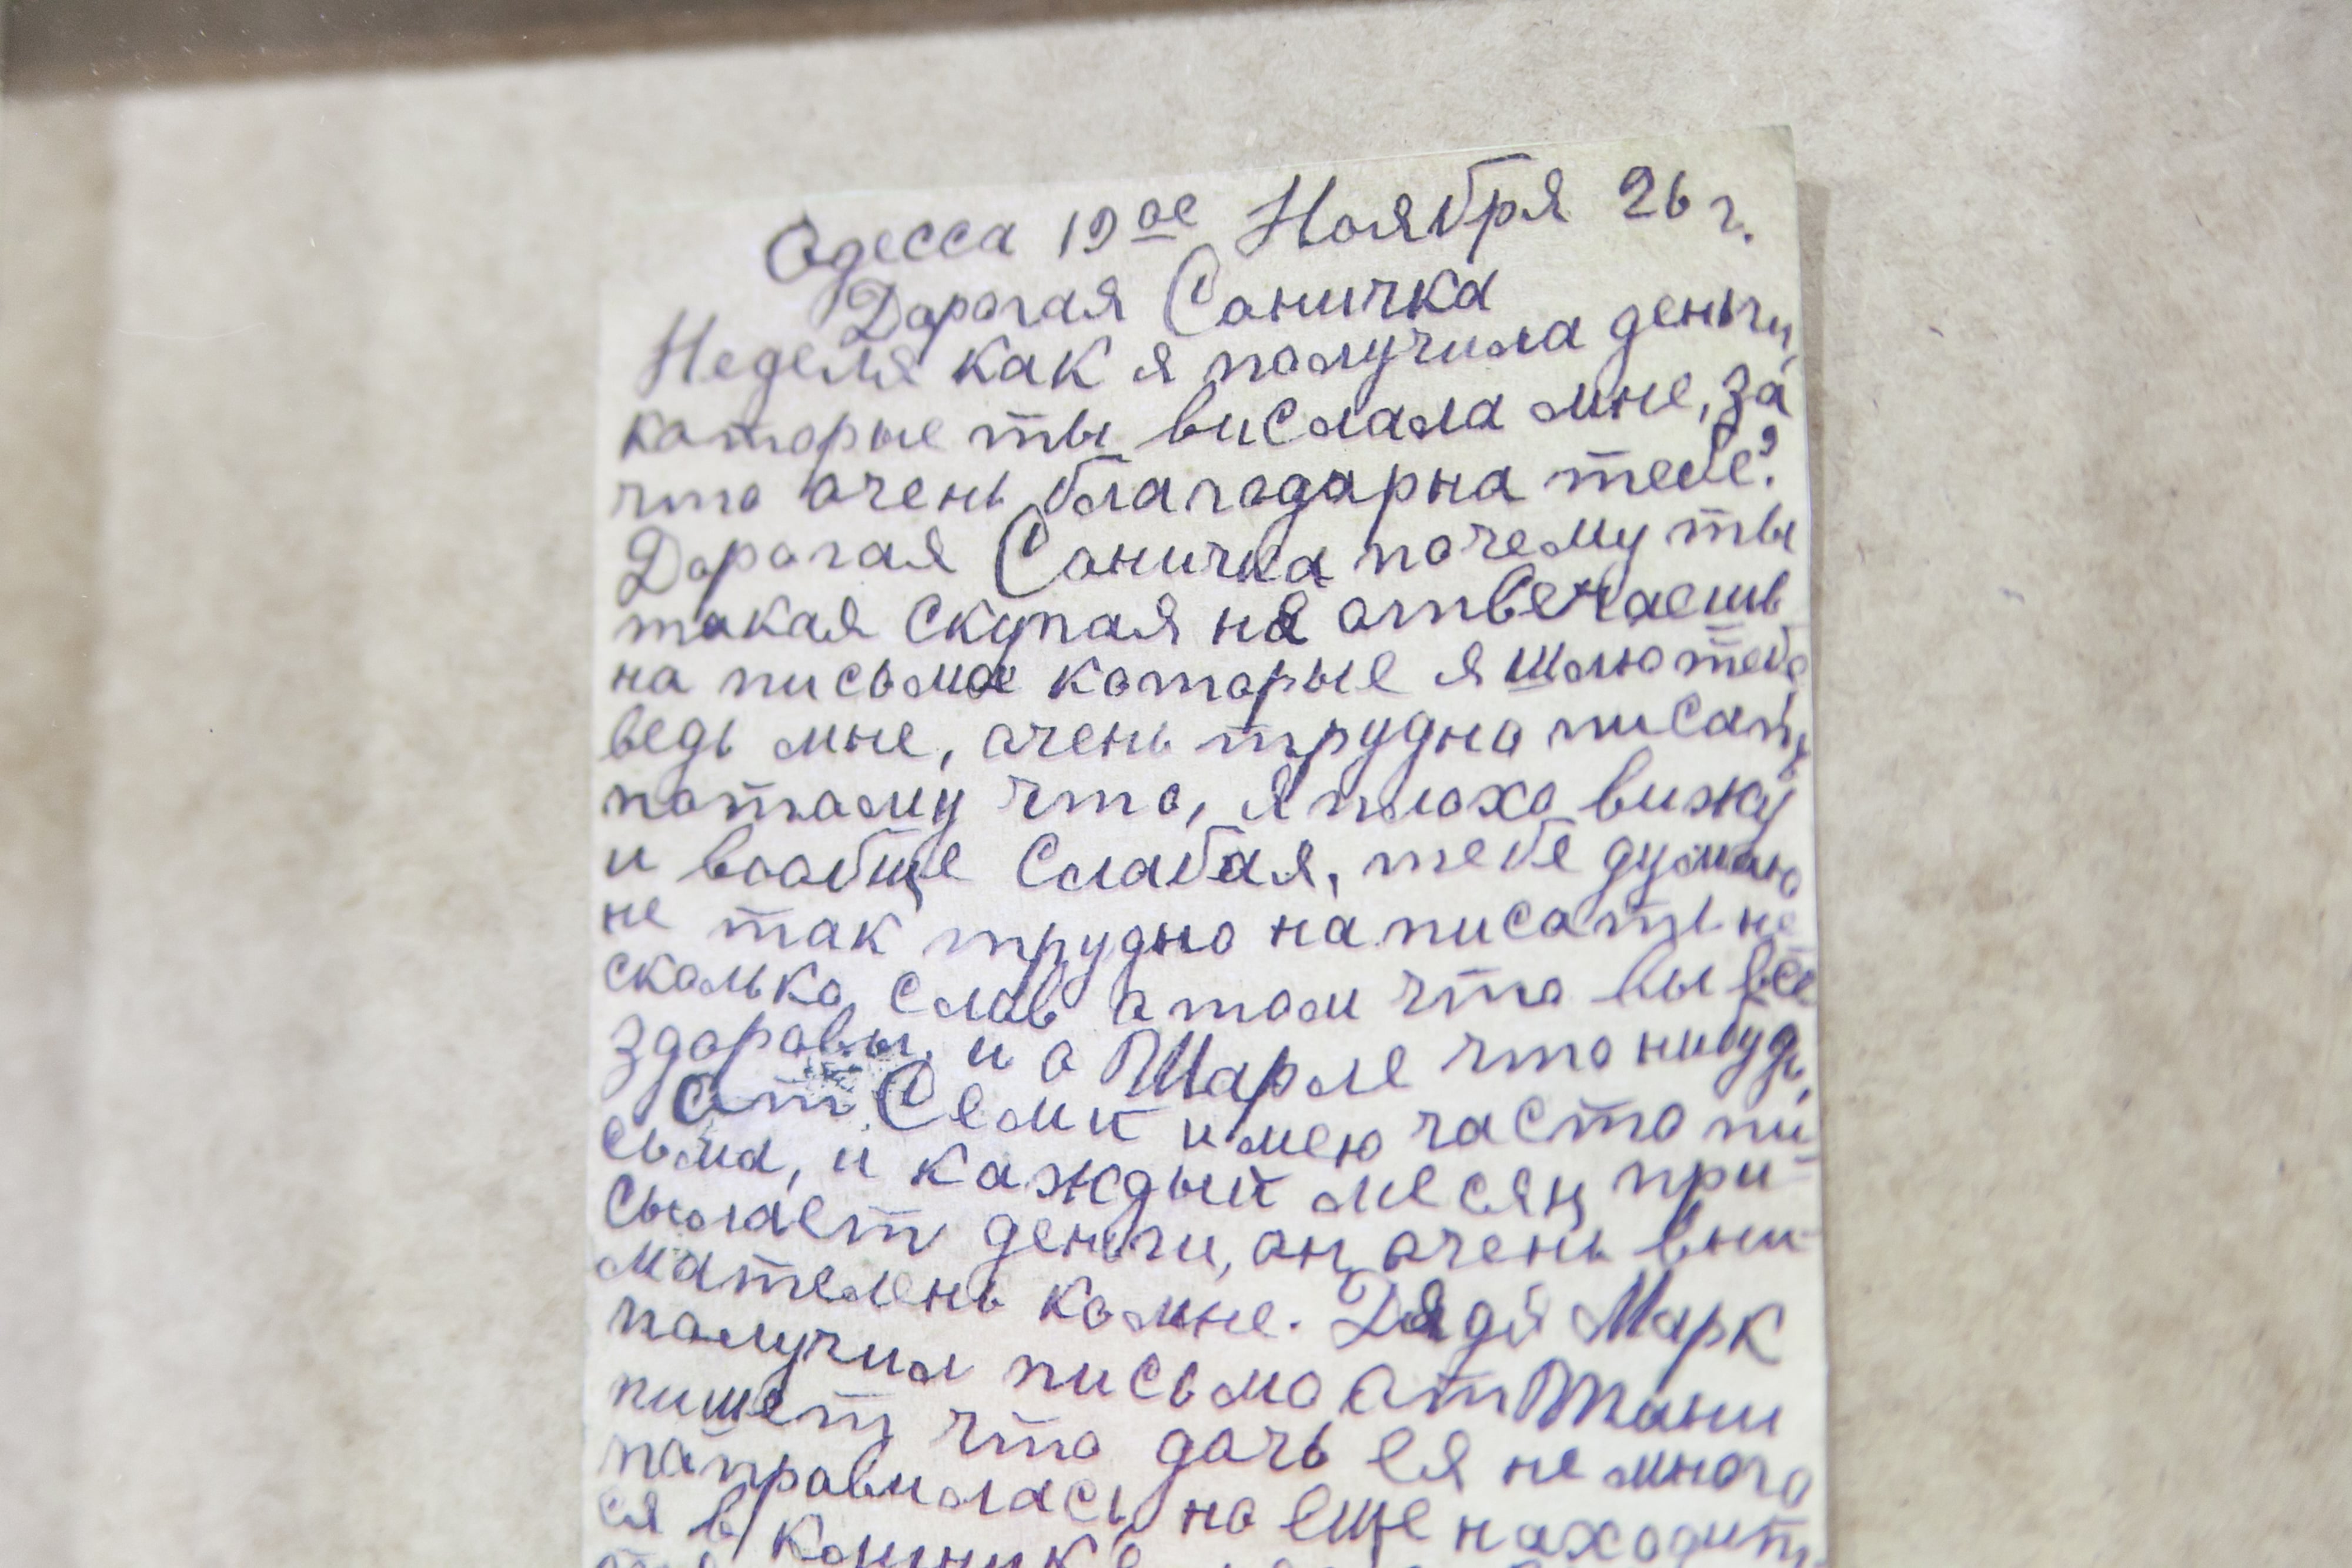 Одесса 19ое Ноября 26 г.
Дорогая Соничка
Неделя как я получила деньги,
которые ты вислала мне, за
что очень благодарна тебе?
Дорогая Соничка почему ты
такая скупая не отвечаешь
на письма которые я шлю тебе,
ведь мне, очень трудно писать,
потому что, я плохо вижу
и вообще слабая, тебе думаю
не так трудно написать не
сколько слов о том что вы все
здоровы, и о Шарле что нибудь,
От Семи имею часто пи
сьма, и каждый месяц при-
сылает деньги, он очень вни-
мателень ко мне. Дядя Марк
получил письмо от Тани
пишет что дочь ея не много
поправилась но еще находит-
ся в клинике